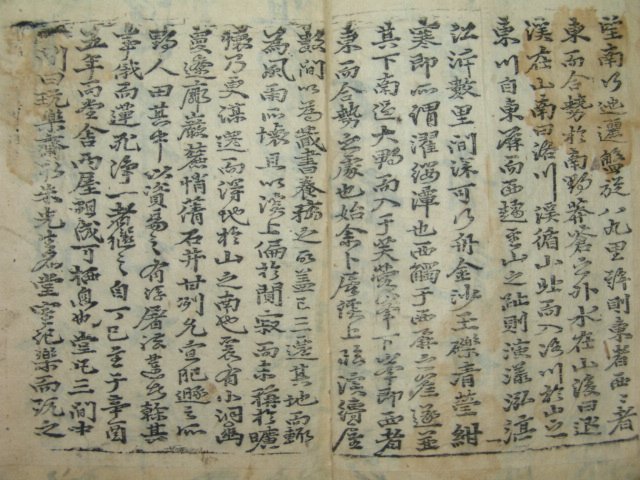 望南行迤邐盤旋八九里許則東者西〻者
東而合勢於南野莽蒼之外水在山後曰退
溪在山南曰洛川溪循山北而入洛川於山之
東川自東屛而西趨至山之趾則演漾泓渟
沿泝數里間深可行舟金沙玉礫清瑩紺
寒卽所謂濯纓潭也西觸于西屛之崖遂並
其下南過大野而入于芙蓉峯下峯卽西者
東而合勢之處也始余卜居溪上臨溪縛屋
數間以爲藏書養拙之所蓋已三遷其地而輒
爲風雨所壞且以溪上偏於闃寂而不稱於曠
懷乃更謀遷而得地於山之南也爰有小洞幽
敻遼廓巖麓悄蒨石井甘冽允宜肥遯之所
野人田其中以資易之有浮屠法蓮者幹其
事俄而蓮死淨一者繼之自丁巳至于辛酉
五年而堂舍兩屋粗成可栖息也堂凡三間中
一間曰玩樂齋取朱先生名堂室記樂而玩之